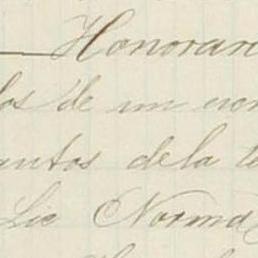 Honoran
los de un nom
antos de la t
Lic Norma